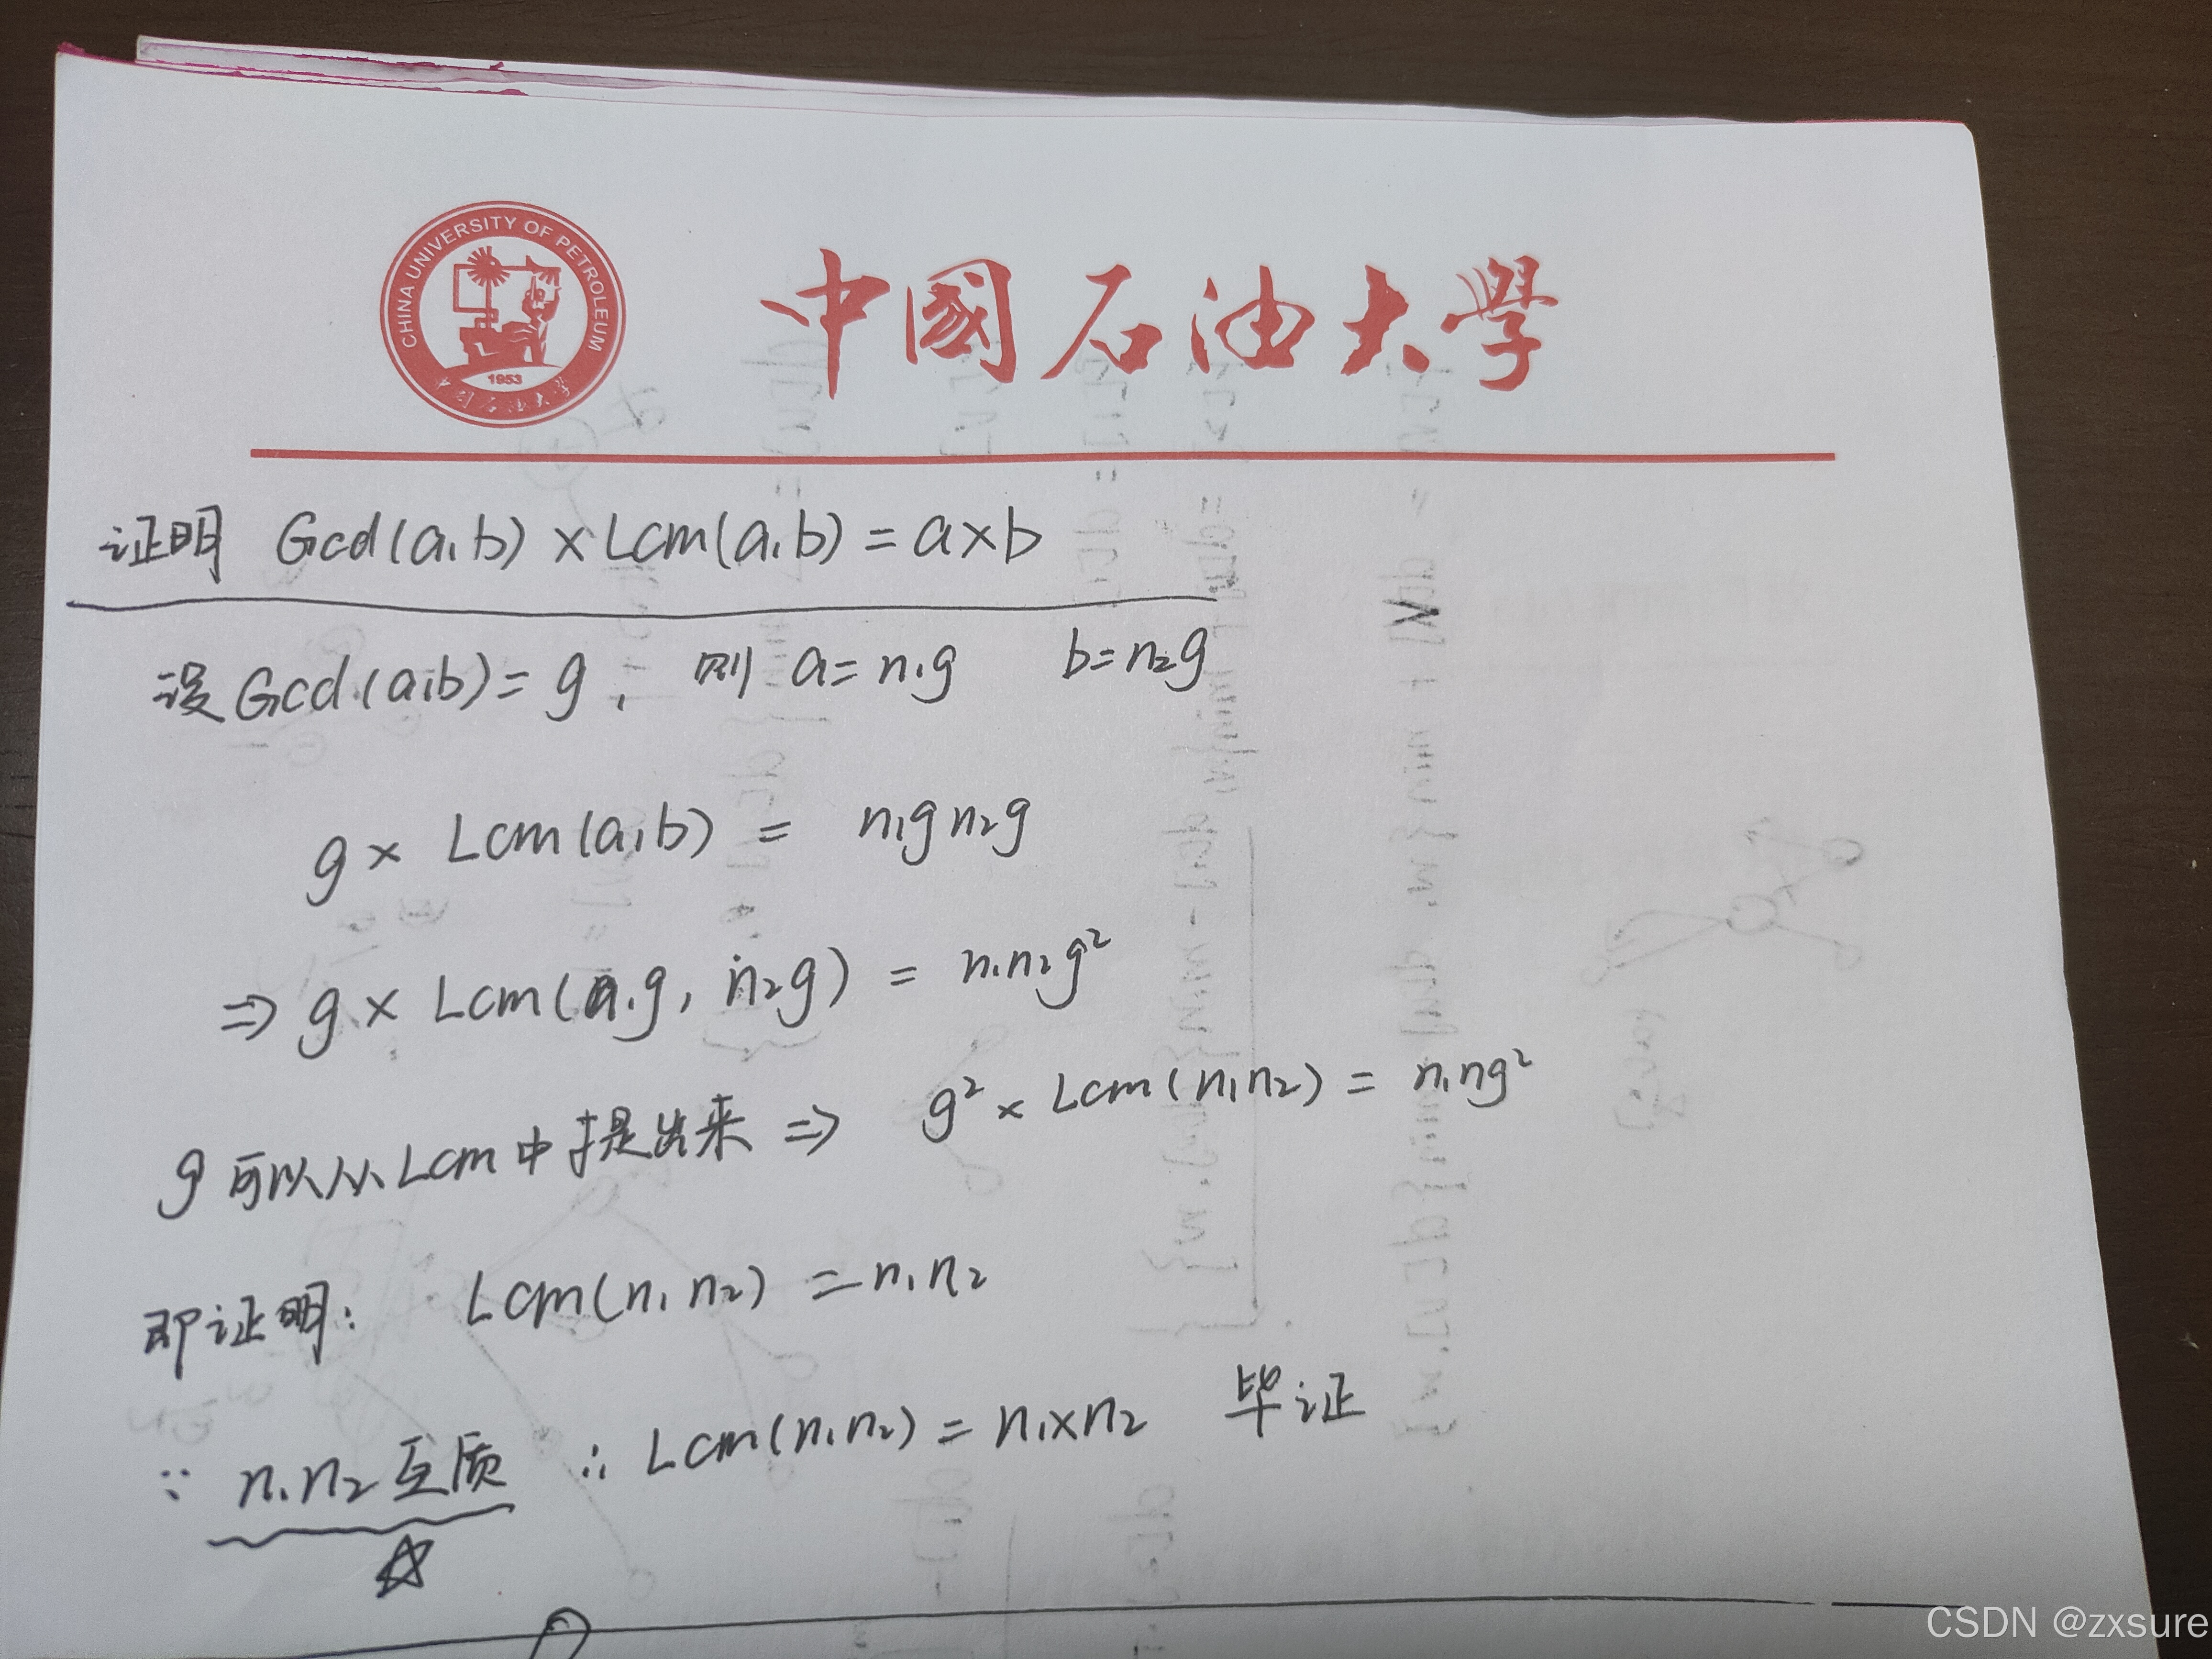 CHINA UNIVERSITY OF PETROLEUM
1953
中国石油大学
中國石油大學
证明 Gcd(a,b) × Lcm(a,b) = a×b
设Gcd(a,b) = g, 则 a = n₁g b = n₂g
g × Lcm(a,b) = n₁g n₂g
⇒ g × Lcm(n₁g, n₂g) = n₁n₂g²
g 可以从Lcm中提出来 ⇒ g² × Lcm(n₁n₂) = n₁ng²
即证明: Lcm(n₁n₂) = n₁n₂
∵ n₁n₂互质 ∴ Lcm(n₁n₂) = n₁×n₂ 毕证
CSDN @zxsure